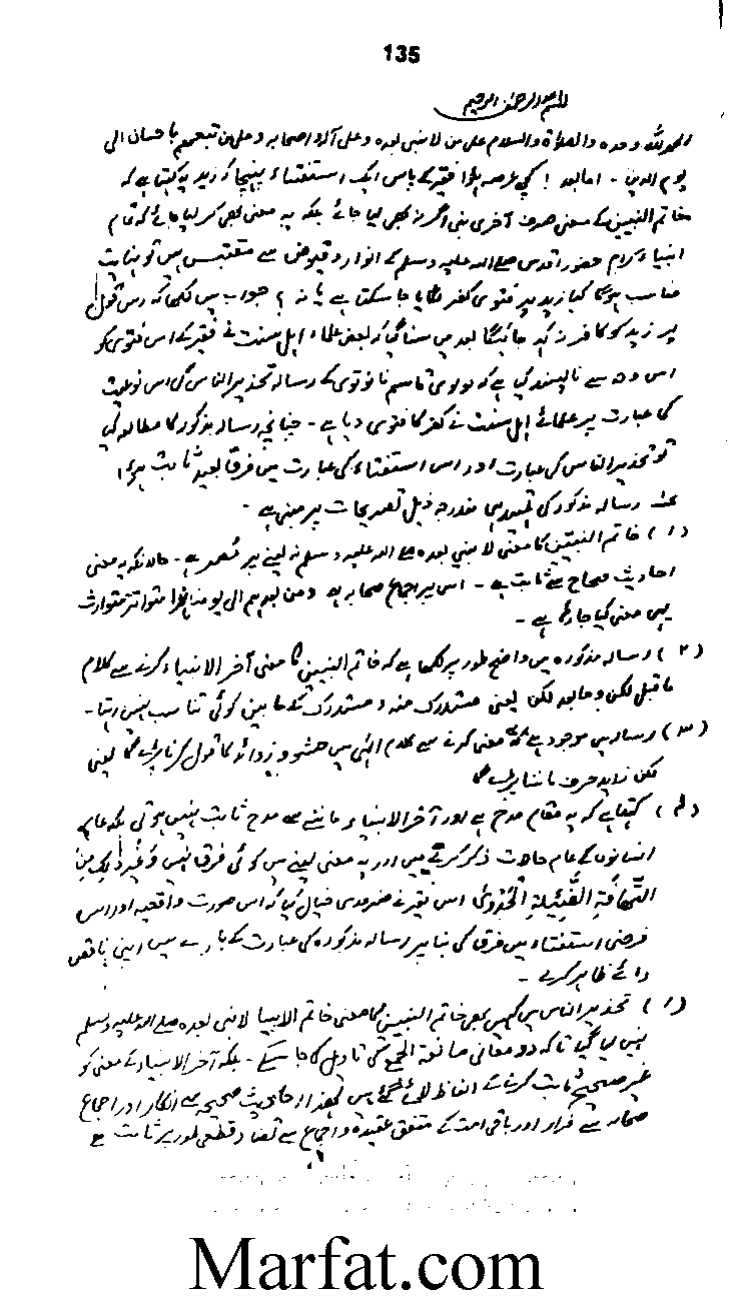 135
بسم اللہ الرحمٰن الرحیم
الحمدللہ وحدہ والصلوٰۃ والسلام علی من لا نبی بعدہ وعلی آلہ واصحابہ وعلی من تبعھم باحسان الی
یوم الدین - امابعد ! کچھ عرصہ ہوا فقیر کے پاس ایک استفتاء پہنچا کہ زید یہ کہتا ہے کہ
خاتم النبیین کے معنی صرف آخری نبی اگر نہ بھی لیا جائے بلکہ یہ معنی بھی کر لیا جائے کہ تمام
انبیاء کرام حضور اقدس صلے اللہ علیہ وسلم کے انوار و فیوض سے مقتبس ہیں تو نہایت
مناسب ہوگا کیا زید پر فتویٰ کفر لگایا جا سکتا ہے یا نہ ؟ جواب میں لکھا کہ اس قول
پر زید کو کافر نہ کہا جائیگا بعد میں سنا گیا کہ بعض علماء اہل سنت نے فقیر کے اس فتویٰ کو
اس وجہ سے ناپسند کیا ہے کہ مولوی قاسم نانوتوی کے رسالہ تحذیر الناس کی اس نوعیت
کی عبارت پر علمائے اہل سنت نے کفر کا فتویٰ دیا ہے - چنانچہ رسالہ مذکور کا مطالعہ کیا
تو تحذیر الناس کی عبارت اور اس استفتاء کی عبارت میں فرق بعید ثابت ہوا
رسالہ مذکور کی تمہید ہی مندرجہ ذیل تصریحات پر مبنی ہے -
(۱) خاتم النبیین کا معنی لا نبی بعدہ صلے اللہ علیہ وسلم نہ لینے پر مُصر ہے - حالانکہ یہ معنی
احادیث صحاح سے ثابت ہے - اس پر اجماع صحابہ ہے ومن بعدہم الی یومنا ہذا متواتر متوارث
یہی معنی کیا جا رہا ہے -
(۲) رسالہ مذکورہ میں واضح طور پر لکھا ہے کہ خاتم النبیین کا معنی آخر الانبیاء کرنے سے کلام
ماقبل لکن و مابعد لکن یعنی مستدرک منہ و مستدرک کے مابین کوئی تناسب نہیں رہتا -
(۳) رسالہ میں موجود ہے کہ یہ معنی کرنے سے کلام الٰہی میں حشو و زوائد کا قول کرنا پڑے گا یعنی
لکن زاید حرف ماننا پڑے گا
(۴) کہتا ہے کہ یہ مقام مدح ہے اور آخر الانبیاء ماننے سے مدح ثابت نہیں ہوتی بلکہ عام
انسانوں کے عام حالات ذکر کرنے میں اور یہ معنی لینے میں کوئی فرق نہیں وغیر ذٰلک من
اس فقیر نے ضروری خیال کیا کہ اس صورت واقعیہ اور اس
فرضی استفتاء میں فرق کی بنا پر رسالہ مذکورہ کی عبارت کے بارے میں اپنی ناقص
رائے ظاہر کرے -
(۱) تحذیر الناس میں کہیں بھی خاتم النبیین کا معنی خاتم الانبیا لا نبی بعدہ صلے اللہ علیہ وسلم
نہیں لیا گیا تاکہ دو معانی مانعۃ الجمع کی تاویل کیا جا سکے - بلکہ آخر الانبیاء کے معنی کو
غیر صحیح ثابت کرنے کے الفاظ لائے گئے ہیں لہٰذا احادیث صحیحہ سے انکار اور اجماع
صحابہ سے فرار اور باقی امت کے متفق عقیدہ و اجماع سے تضاد قطعی طور پر ثابت ہے
Marfat.com